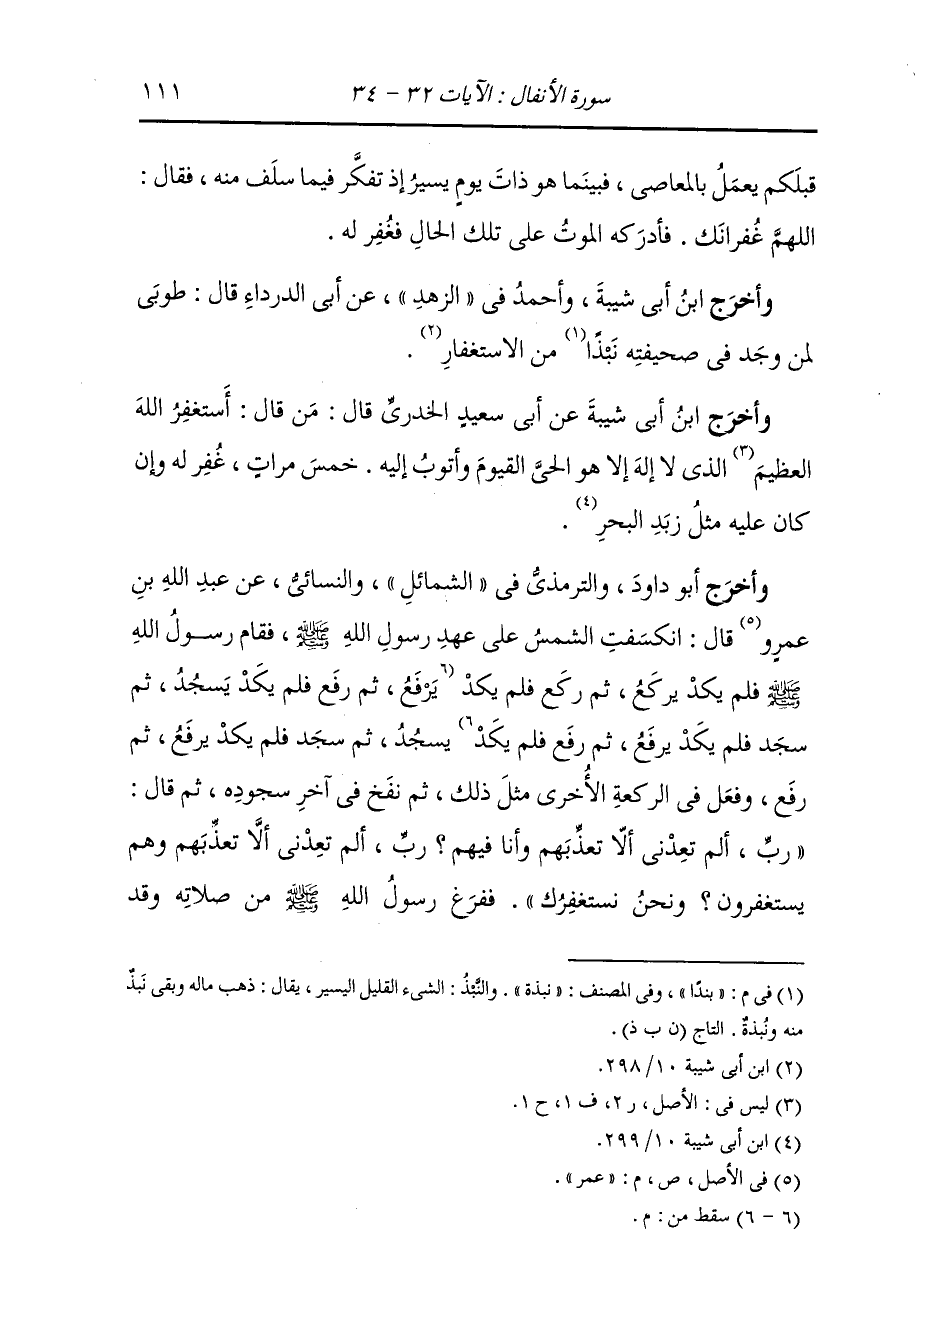 سورة الأنفال : الآيات ٣٢ - ٣٤ ١١١
قبلَكم يعمَلُ بالمعاصى ، فبينَما هو ذاتَ يومٍ يسيرُ إذ تفكَّر فيما سلَف منه ، فقال :
اللهمَّ غُفرانَك . فأدرَكه الموتُ على تلك الحالِ فغُفِر له .
وأخرَج ابنُ أبى شيبةَ ، وأحمدُ فى « الزهدِ » ، عن أبى الدرداءِ قال : طوبَى
لمن وجَد فى صحيفتِه نَبْذًا(١) من الاستغفارِ(٢) .
وأخرَج ابنُ أبى شيبةَ عن أبى سعيدٍ الخدرىِّ قال : مَن قال : أَستغفِرُ اللهَ
العظيمَ(٣) الذى لا إلهَ إلا هو الحىَّ القيومَ وأتوبُ إليه . خمسَ مراتٍ ، غُفِر له وإن
كان عليه مثلُ زبَدِ البحرِ(٤) .
وأخرَج أبو داودَ ، والترمذىُّ فى « الشمائلِ » ، والنسائىُّ ، عن عبدِ اللهِ بنِ
عمرٍو(٥) قال : انكسَفتِ الشمسُ على عهدِ رسولِ اللهِ ﷺ ، فقام رسولُ اللهِ
ﷺ فلم يكدْ يركَعُ ، ثم ركَع فلم يكدْ (٦يَرْفَعُ ، ثم رفَع فلم يكَدْ يَسجُدُ ، ثم
سجَد فلم يكَدْ يرفَعُ ، ثم رفَع فلم يكَدْ٦) يسجُدُ ، ثم سجَد فلم يكدْ يرفَعُ ، ثم
رفَع ، وفعَل فى الركعةِ الأُخرى مثلَ ذلك ، ثم نفَخ فى آخرِ سجودِه ، ثم قال :
« ربِّ ، ألم تعِدْنى ألّا تعذِّبَهم وأنا فيهم ؟ ربِّ ، ألم تعِدْنى ألَّا تعذِّبَهم وهم
يستغفرون ؟ ونحنُ نستغفِرُك » . ففرَغ رسولُ اللهِ ﷺ من صلاتِه وقد
(١) فى م : « بندًا » ، وفى المصنف : « نبذة » . والنَّبْذُ : الشىء القليل اليسير ، يقال : ذهب ماله وبقى نَبذٌ
منه ونُبذةٌ . التاج (ن ب ذ) .
(٢) ابن أبى شيبة ١٠/ ٢٩٨.
(٣) ليس فى : الأصل ، ر ٢، ف ١، ح ١.
(٤) ابن أبى شيبة ١٠/ ٢٩٩.
(٥) فى الأصل ، ص ، م : « عمر » .
(٦ - ٦) سقط من : م .